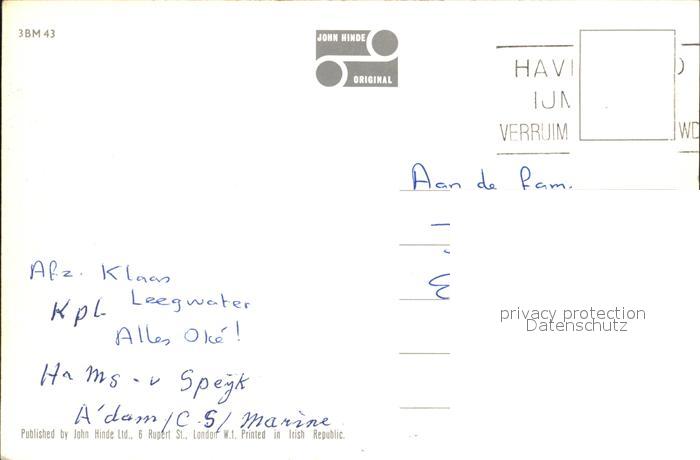 3BM 43
JOHN HINDE
ORIGINAL
HAVI
IJM
VERRUIM WD
Aan de fam.
Afz. Klaas
Kpl Leegwater
Alles Oké!
Hr Ms - v Speijk
A'dam/C.S/Marine
Published by John Hinde Ltd., 6 Rupert St., London W.1. Printed in Irish Republic.
privacy protection
Datenschutz